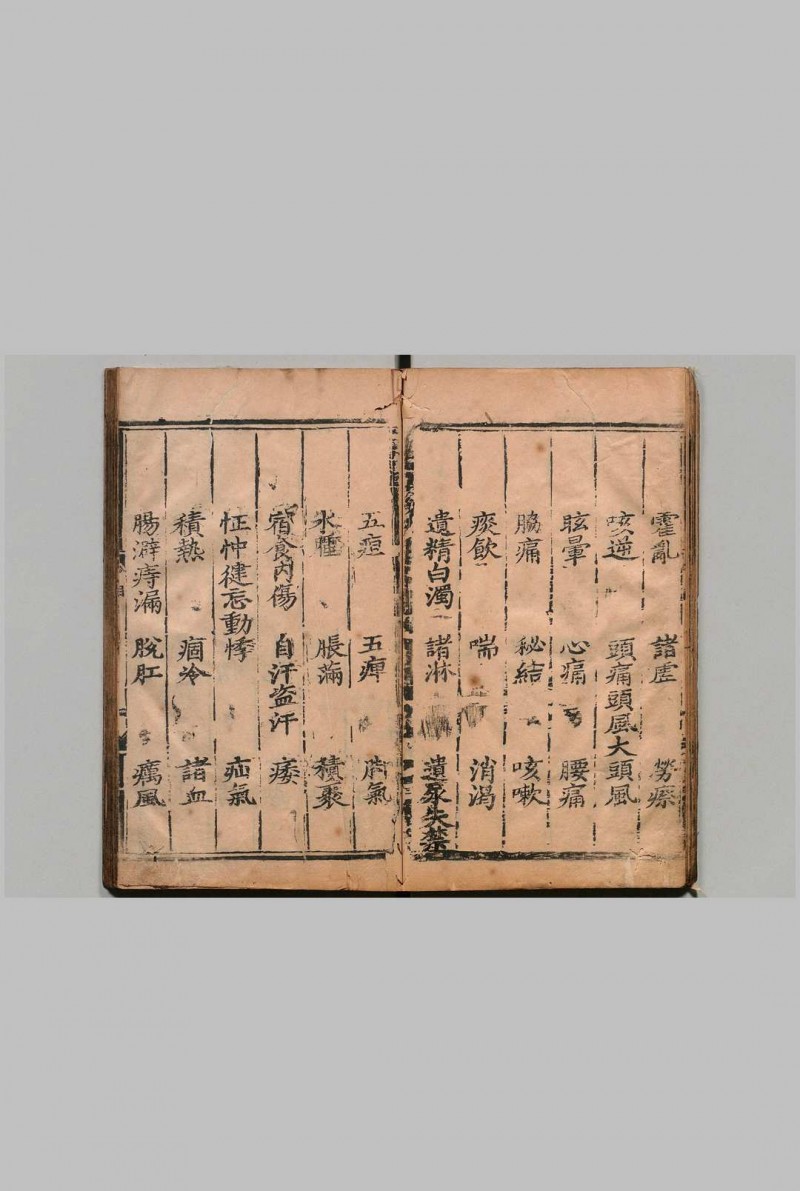 霍亂 諸虛 勞瘵
咳逆 頭痛頭風大頭風
眩暈 心痛 腰痛
脇痛 秘結 咳嗽
痰飲 喘 消渴
遺精白濁 諸淋 遺尿失禁
五疸 五痺 脚氣
水腫 脹滿 積聚
宿食內傷 自汗盜汗 痿
怔忡健忘動悸 疝氣
積熱 痼冷 諸血
腸澼痔漏 脫肛 癘風